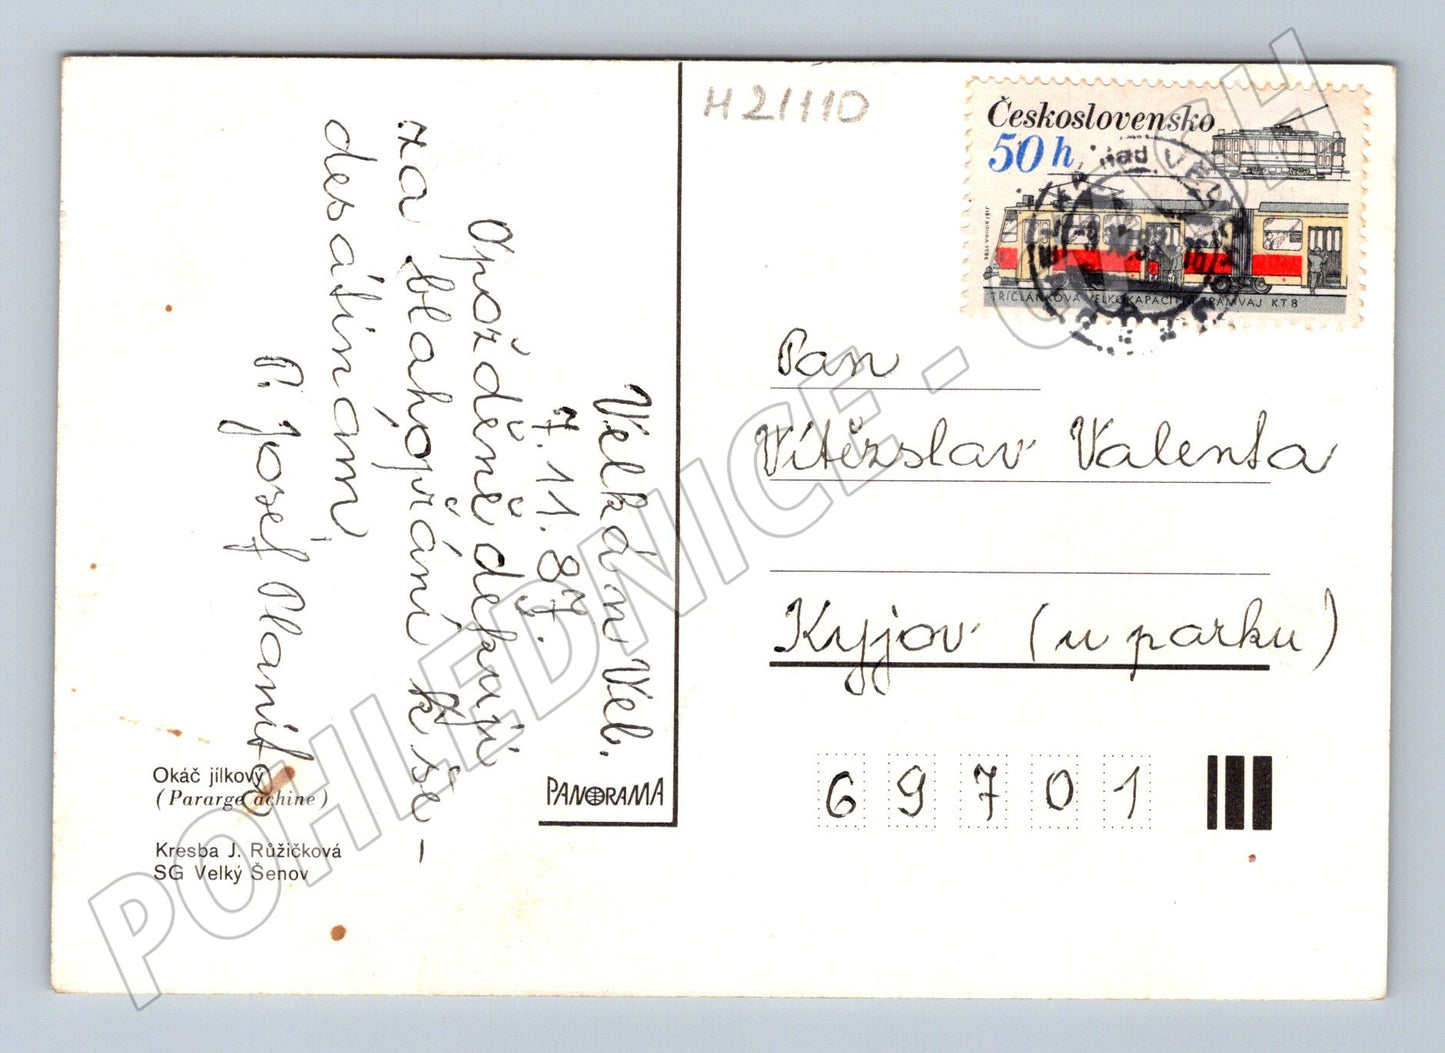 H21110
Československo
50 h
TŘÍČLÁNKOVÁ VELKOKAPACITNÍ TRAMVAJ KT8
Velká n. Vel.
7. 11. 87.
Opožděně děkuji
za blahopřání k še-
desátinám
P. Josef
Okáč jílkový
(Pararge achine)
Kresba J. Růžičková
SG Velký Šenov
PANORAMA
Pan
Vítězslav Valenta
Kyjov (u parku)
69701
POHLEDNICE